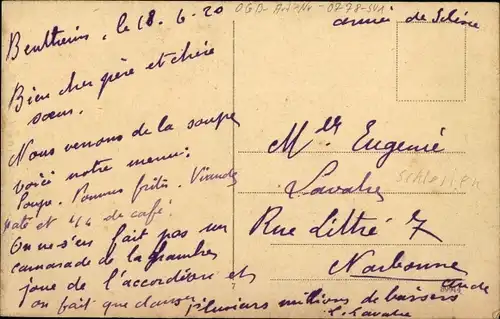 Beuthen, le 18.6.20
Bien cher père et chère
sœur.
Nous venons de la soupe
voici notre menu:
Soupe. Pommes frites. Viande
pate et 1/4 de café.
On ne s'en fait pas un
camarade de la chambre
joue de l'accordéon et
on fait que danser
plusieurs millions de baisers
armée de Silésie
Mlle Eugénie
Lavabre
Rue Littré 7
Narbonne
Aude
Schlesien